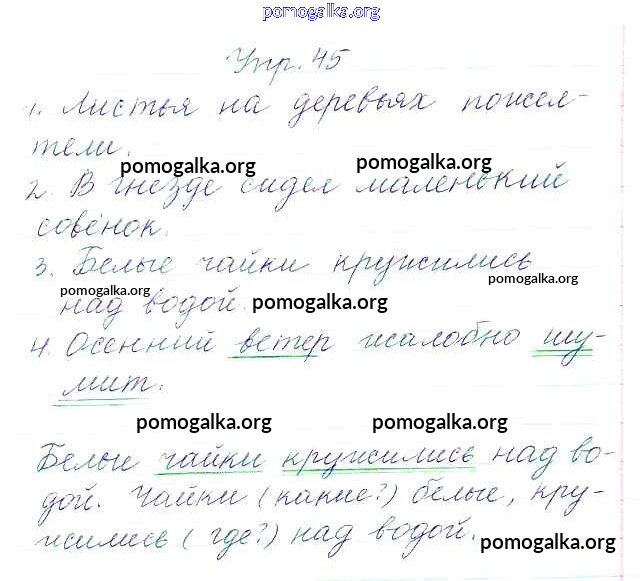 pomogalka.org
Упр. 45
1. Листья на деревьях пожел-
тели.
pomogalka.org pomogalka.org
2. В гнезде сидел маленький
совёнок.
3. Белые чайки кружились
pomogalka.org pomogalka.org
над водой. pomogalka.org
4. Осенний ветер жалобно шу-
мит.
pomogalka.org pomogalka.org
Белые чайки кружились над во-
дой. Чайки (какие?) белые, кру-
жились (где?) над водой.
pomogalka.org